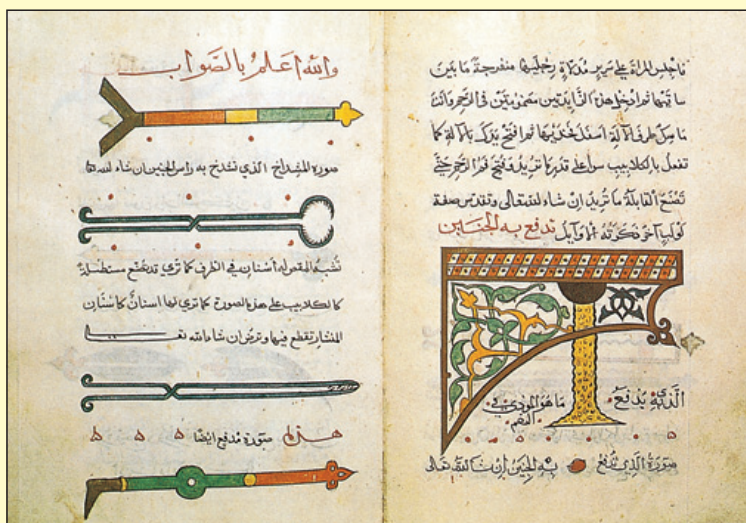 فاجلس المراة على سرير مدلاة رجليها منفرجة ما بين
ساقيها ثم ادخل هذه الزايدتين مضمومتين في الرحم وانت
ماسك طرف الالة اسفل فخذيها ثم افتح يدك بالالة كما
تفعل بالكلاليب سوا على قدر ما تريد وفتح فم الرحم حتى
تصنع القابلة ما تريد ان شاء الله تعالى وتقدس صفة
لولب اخر ذكرته الاوايل تدفع به الجنين
الذي يدفع
صورة الذي تدفع به الجنين ان شا الله تعالى
والله اعلم بالصواب
صورة المشداخ الذي تشدخ به راس الجنين ان شاء الله تعا
تشبه المقص له اسنان في الطرف كما تري قد تصنع مستطيلة
كالكلاليب على هذه الصورة كما تري لها اسنان كاسنان
المنشار تقطع فيها وترض ان شاء الله تعا
هذه صورة مدفع ايضا